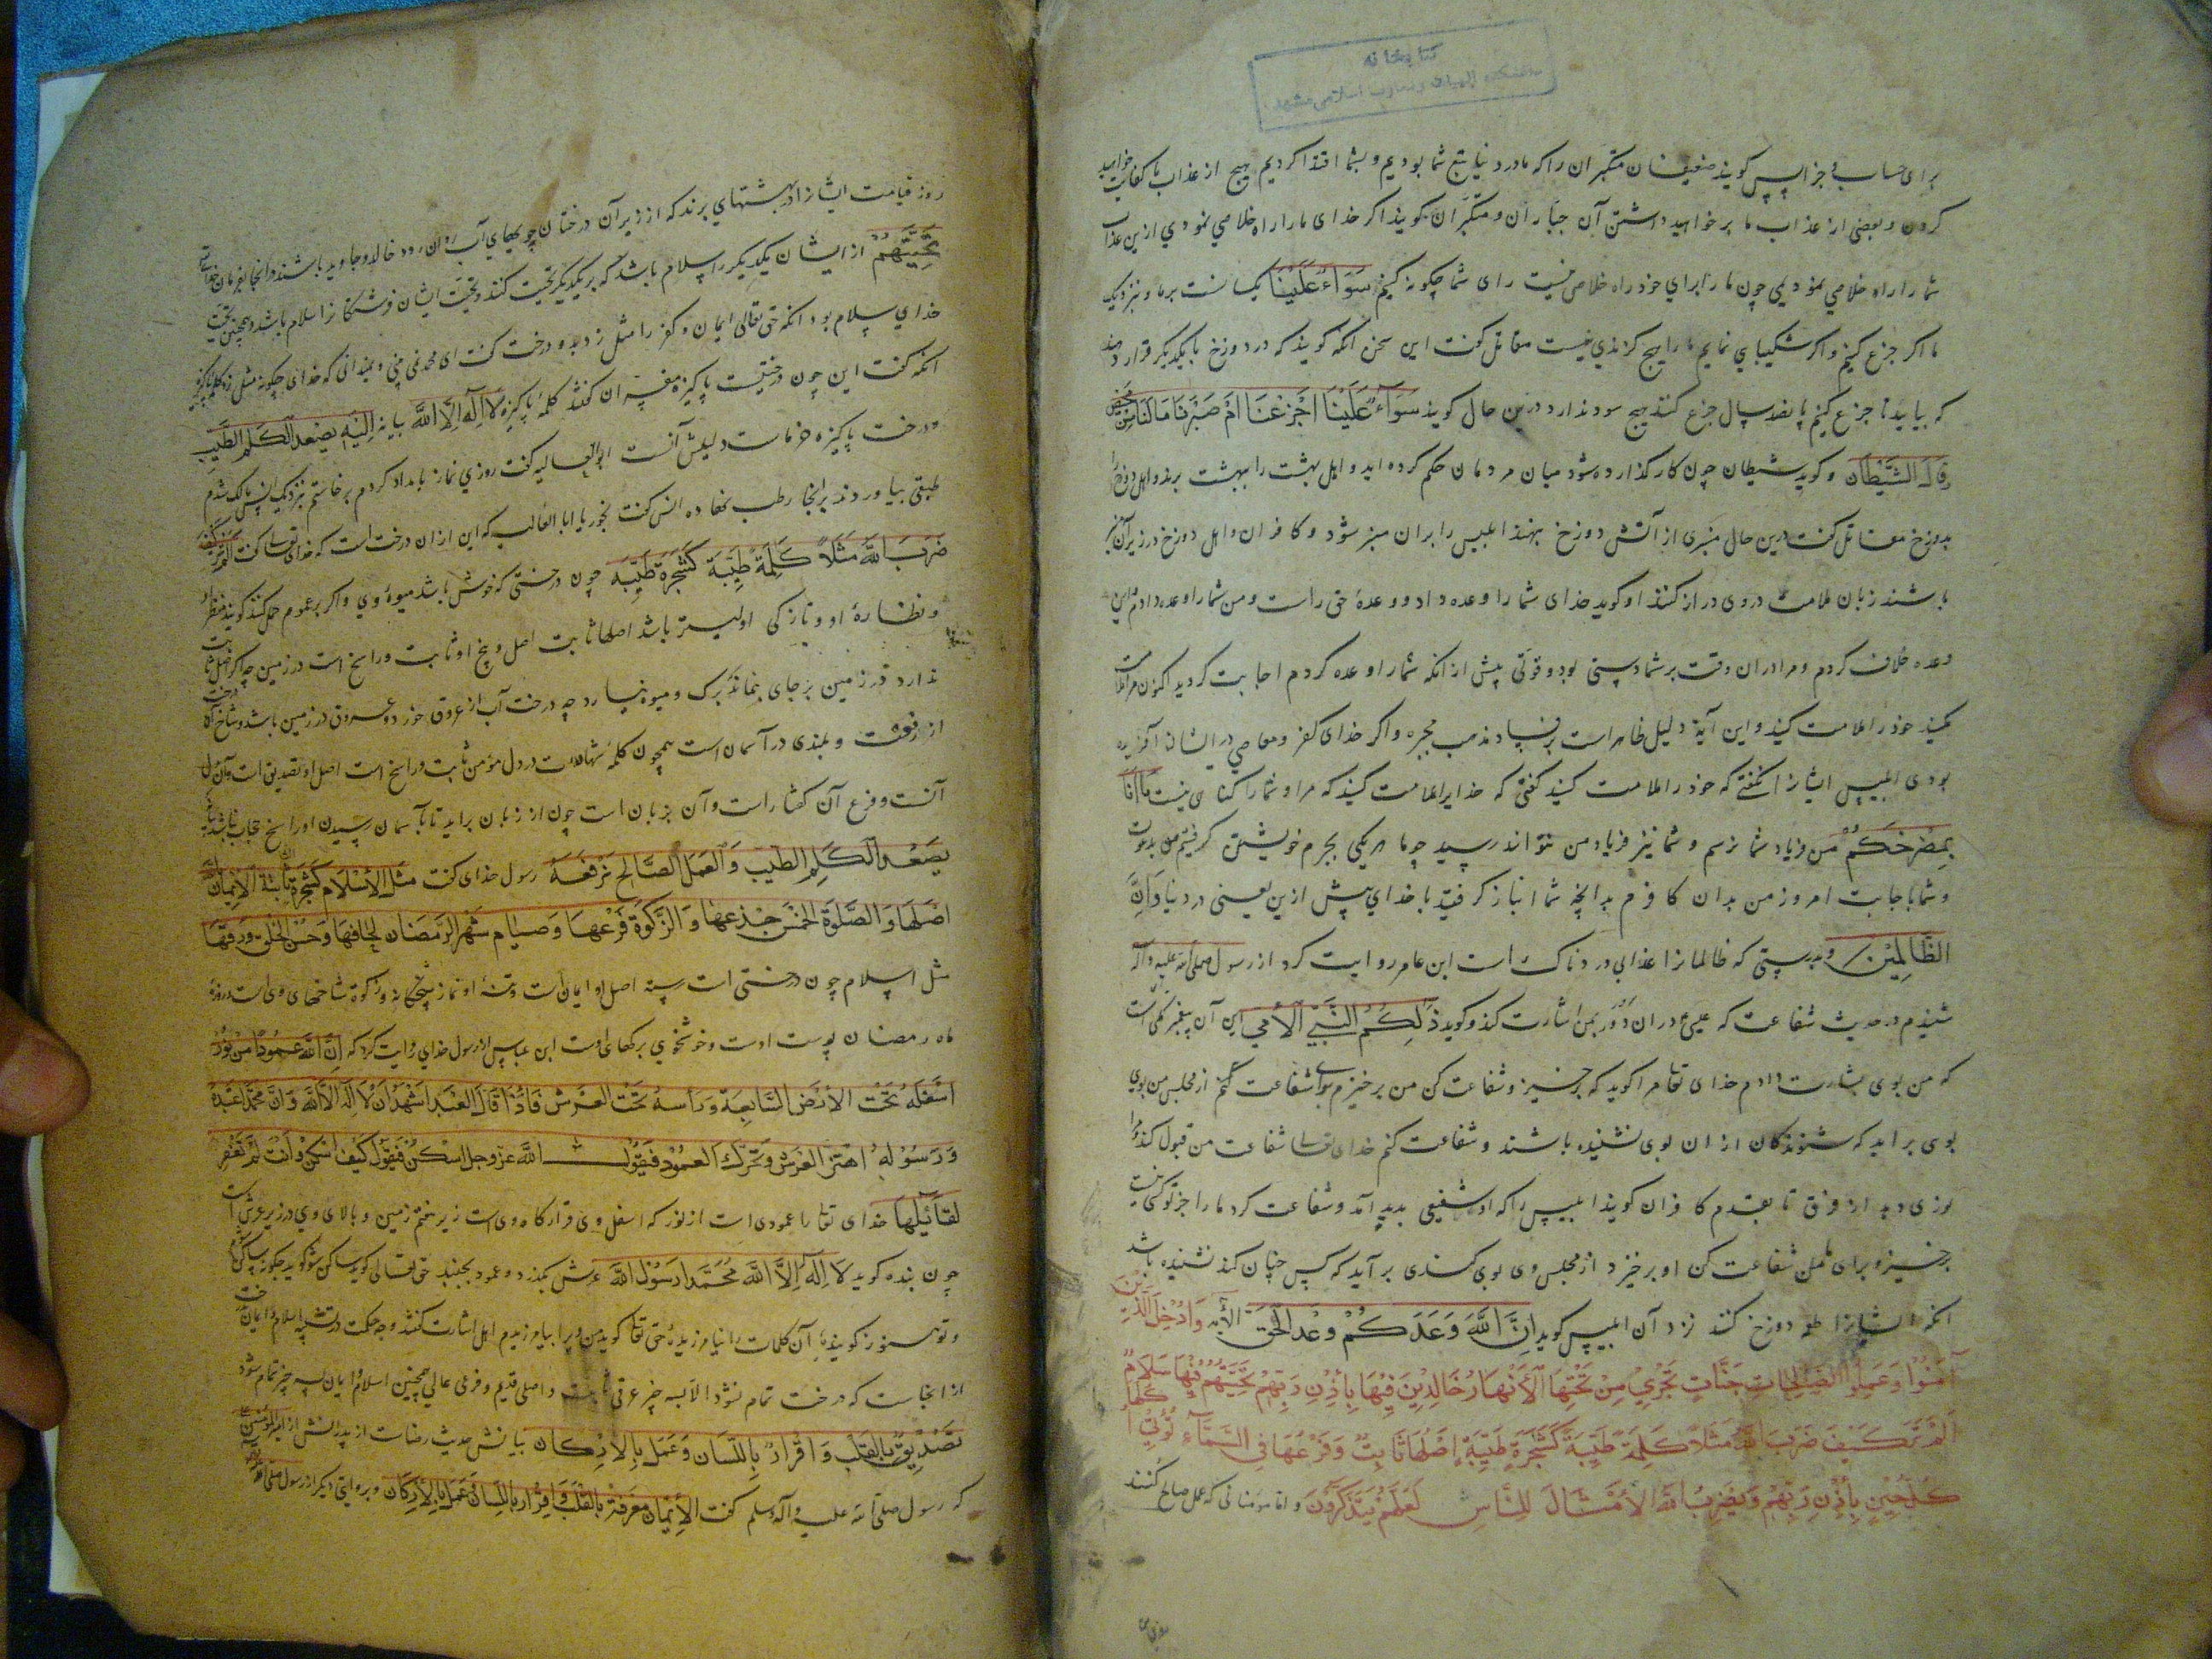 کتابخانه
دانشکده الهیات و معارف اسلامی مشهد
برای حساب و جزا پس کویند ضعیفان متکبران را که ما در دنیا تبع شما بودیم و بشما اقتدا کردیم هیچ از عذاب ما کفایت خواهید
کردن و بعضی از عذاب ما بر خواهید داشتن آن جباران و متکبران کویند اکر خدای ما را راه خلاصی نمودی ازین عذاب
شما را راه خلاصی نمودیمی چون ما را برای خود راه خلاص نیست برای شما چکونه کنیم سَوَاءٌ عَلَيْنَا یکسانست بر ما و نزدیک
ما اکر جزع کنیم و اکر شکیبایی نماییم ما را هیچ کزیدی نیست مقاتل کفت این سخن آنکه کویند که در دوزخ با یکدیکر قرار دهند
که بیایید تا جزع کنیم پانصد سال جزع کنند هیچ سود ندارد درین حال کویند سَوَآءٌ عَلَيْنَا اَجَزِعْنَا اَمْ صَبَرْنَا مَا لَنَا مِنْ مَحِيصٍ
وَقَالَ الشَّيْطَان و کوید شیطان چون کار کذارده شود میان مردمان حکم کرده اید و اهل بهشت را ببهشت برند و اهل دوزخ را
بدوزخ مقاتل کفت درین حال منبری از آتش دوزخ بنهند ابلیس را بران منبر شود و کافران و اهل دوزخ در زیر آن منبر
باشند زبان ملامت در وی دراز کنند او کوید خدای شما را وعده داد و وعدهٔ حق راست و من شما را وعده دادم و این
وعده خلاف کردم و مرا دران وقت بر شما دستی نبود و قوتی پیش ازانکه شما را وعده کردم اجابت کردید اکنون مرا ملامت
مکنید خود را ملامت کنید و این آیة دلیل ظاهر است بر فساد مذهب مجبره و اکر خدای کفر و معاصی در ایشان آفریده
بودی ابلیس ایشانرا نکفتی که خود را ملامت کنید کفتی که خدایرا ملامت کنید که مرا و شما را کناهی نیست مَا اَنَا
بِمُصْرِخِكُمْ من فریاد شما نرسم و شما نیز فریاد من نتوانید رسید چو ما هر یکی بجرم خویشتن کرفتیم من بدعوت
و شما باجابت امروز من بدان کافرم بدانچه شما انباز کرفتید با خدای پیش ازین یعنی در دنیا وَاِنَّ
الظَّالِمِيْنَ و بدرستی که ظالمانرا عذابی دردناک است ابن عامر روایت کرد از رسول صلی الله علیه و آله
شنیدم در حدیث شفاعت که عیسی ع دران روز بمن اشارت کند و کوید ذٰلِكُمُ النَّبِيُّ الْاُمِّي این آن پیغبر مکی است
که من بوی بشارت دادم خدای تعا مرا کوید که برخیز و شفاعت کن من برخیزم برای شفاعت کنم از مجلس من بوی
بوی براید که شنوندکان ازان بوی نشنیده باشند و شفاعت کنم خدای تعالی شفاعت من قبول کند و مرا
نوری دهد از فرق تا بقدم کافران کویند ابلیس را که او شفیعی بدید آمد و شفاعت کرد ما را جز تو کسی نیست
برخیز و برای ما شفاعت کن او برخیزد از مجلس وی بوی کندی برآید که کس چنان کند نشنیده باشد
انکه ایشانرا طمع دوزخ کنند نزد آن ابلیس کوید اِنَّ اللّٰهَ وَعَدَكُمْ وَعْدَ الْحَقِّ الآیه وَاُدْخِلَ الَّذِيْنَ
اٰمَنُوْا وَعَمِلُوا الصَّالِحَاتِ جَنَّاتٍ تَجْرِيْ مِنْ تَحْتِهَا الْاَنْهَارُ خَالِدِيْنَ فِيْهَا بِاِذْنِ رَبِّهِمْ تَحِيَّتُهُمْ فِيْهَا سَلَامٌ
اَلَمْ تَرَ كَيْفَ ضَرَبَ اللّٰهُ مَثَلًا كَلِمَةً طَيِّبَةً كَشَجَرَةٍ طَيِّبَةٍ اَصْلُهَا ثَابِتٌ وَفَرْعُهَا فِي السَّمَآءِ تُؤْتِيْ اُكُلَهَا
كُلَّ حِيْنٍ بِاِذْنِ رَبِّهِمْ وَيَضْرِبُ اللّٰهُ الْاَمْثَالَ لِلنَّاسِ لَعَلَّهُمْ يَتَذَكَّرُوْنَ و اما مومنانی که عمل صالح کنند
روز قیامت ایشانرا در بهشتهای برند که از زیر آن درختان جویهای آب روان رود خالد و جاوید باشند در انجا بفرمان خدای
تَحِيَّتُهُمْ از ایشان یکدیکر را سلام باشد که بر یکدیکر تحیت کنند و تحیت ایشان فرشتکانرا سلام باشد و همچنین تحیت
خدای سلام بود انکه حق تعالی ایمان و کفر را مثل زد بدو درخت کفت ای محمد نمی بینی و نمیدانی که خدای چکونه مثل زد کلمه پاکیزه
انکه کفت این چون درختیست پاکیزه مفسران کفتند کلمهٔ پاکیزه لَا اِلٰهَ اِلَّا اللّٰهُ بیانه اِلَيْهِ يَصْعَدُ الْكَلِمُ الطَّيِّبُ
و درخت پاکیزه خرماست دلیلش آنست ابو العالیه کفت روزی نماز بامداد کردم برخاستم نزدیک انس مالک شدم
طبقی بیاوردند بر انجا رطب نهاده انس کفت بخور یا ابا العالیه که این ازان درخت است که خدای تعالی کفت اَلَمْ تَرَ كَيْفَ
ضَرَبَ اللّٰهُ مَثَلًا كَلِمَةً طَيِّبَةً كَشَجَرَةٍ طَيِّبَةٍ چون درختی که خوش باشد میوهٔ وی و اکر بر عموم حمل کنند کویند منظر او
و نظارهٔ او و تازکی اولیتر باشد اصلها ثابت اصل و بیخ او ثابت و راسخ است در زمین چه اکر اصل ثابت
ندارد در زمین برجای نماند برک و میوه نیارد چه درخت آب از عروق خورد و عروق در زمین باشد و شاخ آن درخت
از رفعت و بلندی در آسمان است همچون کلمهٔ شهادت در دل مؤمن ثابت و راسخ است اصل او تصدیق است و آن دل
آنست و فرع آن کفتار است و آن بزبان است چون از زبان براید تا بآسمان رسیدن او را هیچ حجاب نباشد
يَصْعَدُ الْكَلِمُ الطَّيِّبُ وَالْعَمَلُ الصَّالِحُ يَرْفَعُهُ رسول خدای کفت مَثَلُ الْاِسْلَامِ كَشَجَرَةٍ ثَابِتَةٍ الْاِيْمَانُ
اَصْلُهَا وَالصَّلٰوةُ الْخَمْسُ جِذْعُهَا وَالزَّكٰوةُ فَرْعُهَا وَصِيَامُ شَهْرِ الرَّمَضَانِ لِحَافُهَا وَحُسْنُ الْخُلْقِ وَرَقُهَا
مثل اسلام چون درختی است رسته اصل او ایمان است و تنهٔ او نماز پنجکانه و زکوة شاخهای وی است و روزهٔ
ماه رمضان پوست اوست و خوشخویی برکهای اوست ابن عباس از رسول خدای روایت کرد که اِنَّ لِلّٰهِ عَمُوْدًا مِنْ نُوْرٍ
اَسْفَلُهُ تَحْتَ الْاَرْضِ السَّابِعَةِ وَرَاْسُهُ تَحْتَ الْعَرْشِ فَاِذَا قَالَ الْعَبْدُ اَشْهَدُ اَنْ لَا اِلٰهَ اِلَّا اللّٰهُ وَاَنَّ مُحَمَّدًا عَبْدُهُ
وَرَسُوْلُهُ اهْتَزَّ الْعَرْشُ وَتَحَرَّكَ الْعَمُوْدُ فَيَقُوْلُ اللّٰهُ عَزَّ وَجَلَّ اُسْكُنْ فَيَقُوْلُ كَيْفَ اَسْكُنُ وَاَنْتَ لَمْ تَغْفِرْ
لِقَائِلِهَا خدای تعا را عمودی است از نور که اسفل وی قرارکاه وی است زیر هفتم زمین و بالای وی در زیر عرش است
چون بنده کوید لَا اِلٰهَ اِلَّا اللّٰهُ مُحَمَّدًا رَسُوْلُ اللّٰهِ عرش بلرزد و عمود بجنبد حق تعالی کوید ساکن شو کوید چکونه ساکن شوم
و تو هنوز کویندهٔ آن کلمات را نیامرزیدهٔ حق تعا کوید من ویرا بیامرزیدم اهل اشارت کفتند وجه حکمت در تشبیه اسلام و ایمان بدرخت
از انجاست که درخت تمام نشود الا بسه چیز عرقی ثابت و اصلی قدیم و فرعی عالی همچنین اسلام و ایمان بسه چیز تمام شود
تَصْدِيْقٌ بِالْقَلْبِ وَاِقْرَارٌ بِاللِّسَانِ وَعَمَلٌ بِالْاَرْكَان بیانش حدیث رضاست از پدرانش از امیرالمؤمنین
که رسول صلی الله علیه و آله وسلم کفت اَلْاِيْمَانُ مَعْرِفَةٌ بِالْقَلْبِ وَاِقْرَارٌ بِاللِّسَانِ وَعَمَلٌ بِالْاَرْكَان و بروایتی دیکر از رسول صلی الله